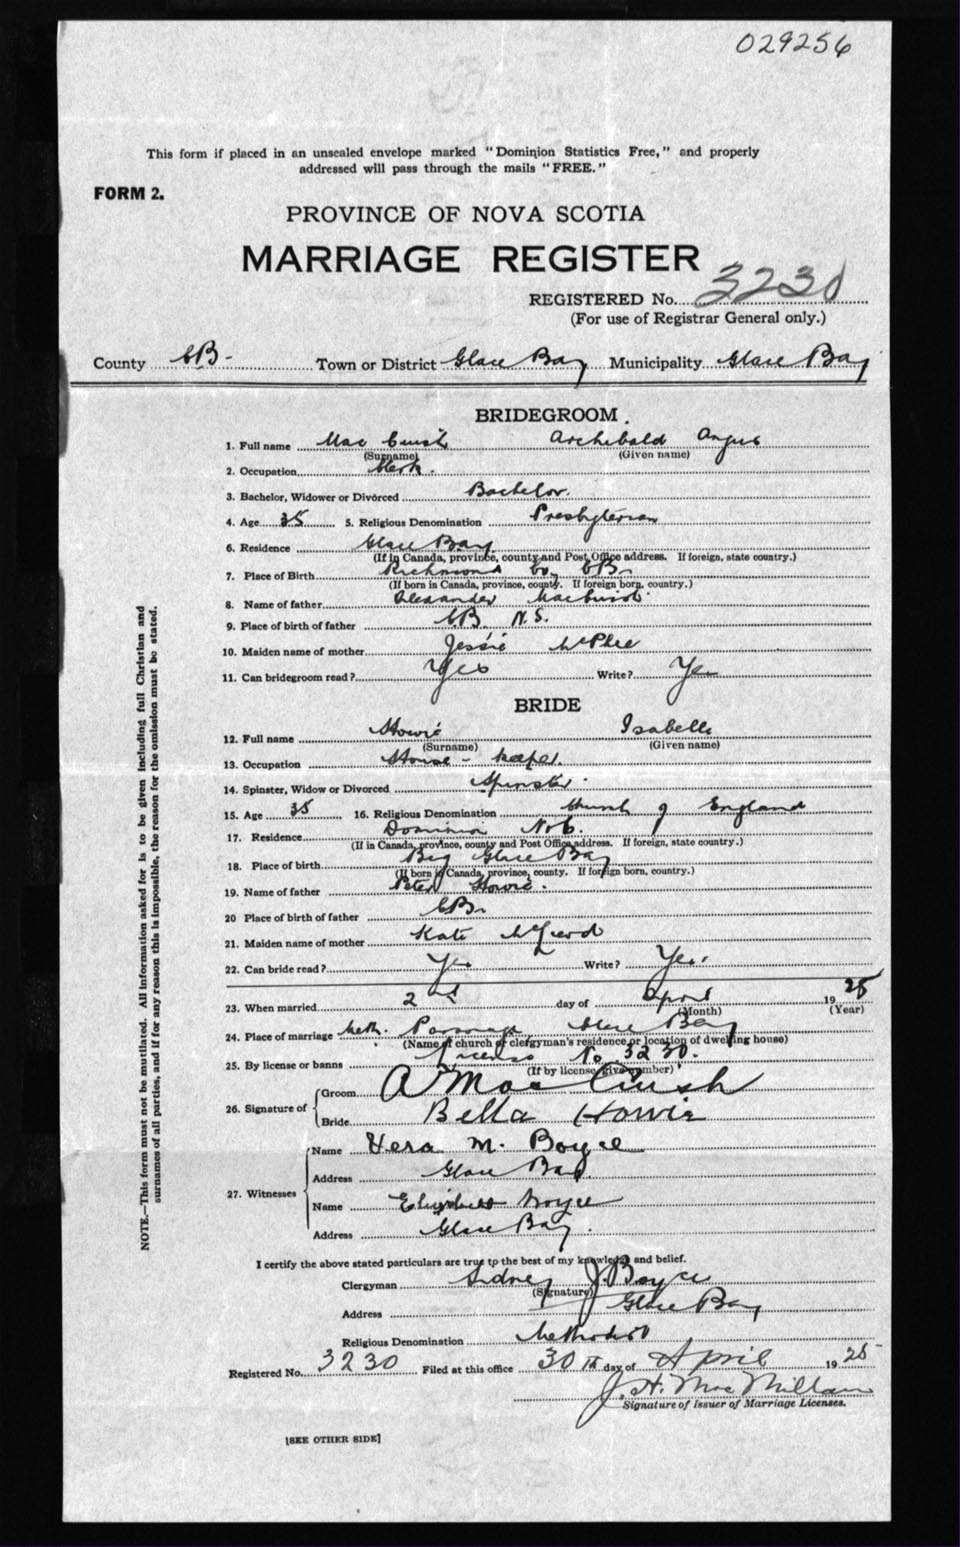 029256
This form if placed in an unsealed envelope marked "Dominion Statistics Free," and properly
addressed will pass through the mails "FREE."
FORM 2.
PROVINCE OF NOVA SCOTIA
MARRIAGE REGISTER
REGISTERED No. 3230
(For use of Registrar General only.)
County CB- Town or District Glace Bay Municipality Glace Bay
BRIDEGROOM
1. Full name Mac Cuish Archibald Angus
(Surname) (Given name)
2. Occupation Clerk.
3. Bachelor, Widower or Divorced Bachelor.
4. Age 35 5. Religious Denomination Presbyterian
6. Residence Glace Bay
(If in Canada, province, county and Post Office address. If foreign, state country.)
7. Place of Birth Richmond Co, CB.
(If born in Canada, province, county. If foreign born, country.)
8. Name of father Alexander MacCuish
9. Place of birth of father CB. N.S.
10. Maiden name of mother Jessie McPhee
11. Can bridegroom read? Yes Write? Yes
BRIDE
12. Full name Howie Isabelle
(Surname) (Given name)
13. Occupation House-keeper.
14. Spinster, Widow or Divorced Spinster
15. Age 35 16. Religious Denomination Church of England
17. Residence Dominion No 6.
(If in Canada, province, county and Post Office address. If foreign, state country.)
18. Place of birth Big Glace Bay
(If born in Canada, province, county. If foreign born, country.)
19. Name of father Peter Howie.
20 Place of birth of father CB.
21. Maiden name of mother Kate McLeod
22. Can bride read? Yes Write? Yes.
23. When married 2nd day of April 1925
(Month) (Year)
24. Place of marriage Meth. Parsonage Glace Bay
(Name of church or clergyman's residence or location of dwelling house)
25. By license or banns License No 3230.
(If by license give number)
26. Signature of Groom A MacCuish
Bride Bella Howie
27. Witnesses Name Vera M. Boyce
Address Glace Bay
Name Elizabeth Boyce
Address Glace Bay.
I certify the above stated particulars are true to the best of my knowledge and belief.
Clergyman Sidney J Boyce
(Signature)
Address Glace Bay
Religious Denomination Methodist
Registered No. 3230 Filed at this office 30th day of April 1925
J. H. MacMillan
Signature of Issuer of Marriage Licenses.
[SEE OTHER SIDE]
NOTE.—This form must not be mutilated. All information asked for is to be given including full Christian and
surnames of all parties, and if for any reason this is impossible, the reason for the omission must be stated.